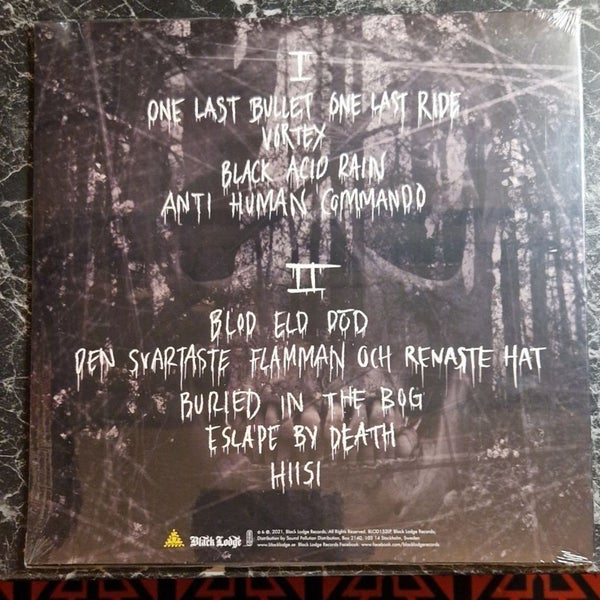 I
ONE LAST BULLET ONE LAST RIDE
VORTEX
BLACK ACID RAIN
ANTI HUMAN COMMANDO
II
BLOD ELD DÖD
DEN SVARTASTE FLAMMAN OCH RENASTE HAT
BURIED IN THE BOG
ESCAPE BY DEATH
HIISI
Black Lodge
℗ & ©. 2021. Black Lodge Records. All Rights Reserved. BLOD152LP. Black Lodge Records,
Distribution by Sound Pollution Distribution, Box 2142, 103 14 Stockholm, Sweden
www.blacklodge.se Black Lodge Records Facebook: www.facebook.com/blacklodgerecords